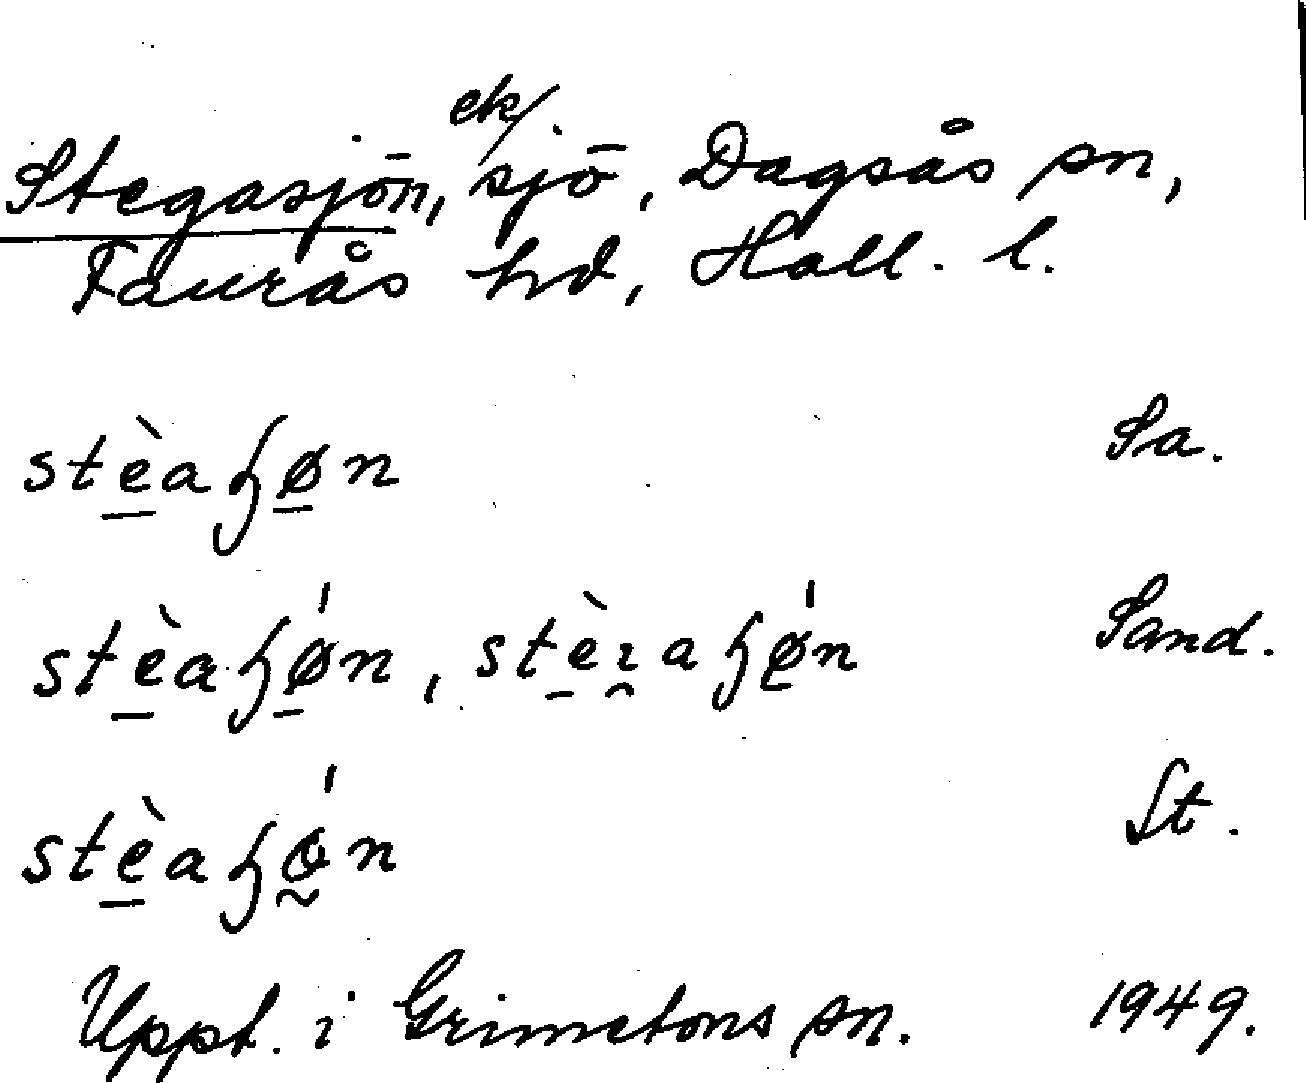 Stegasjön, ek/. sjö, Dagsås sn,
Faurås hd, Hall. l.
stèaɧøn Sa.
stèaɧǿn, stèɿaɧǿn Sand.
stèaɧǿn St.
Uppt. i Grimetons sn. 1949.